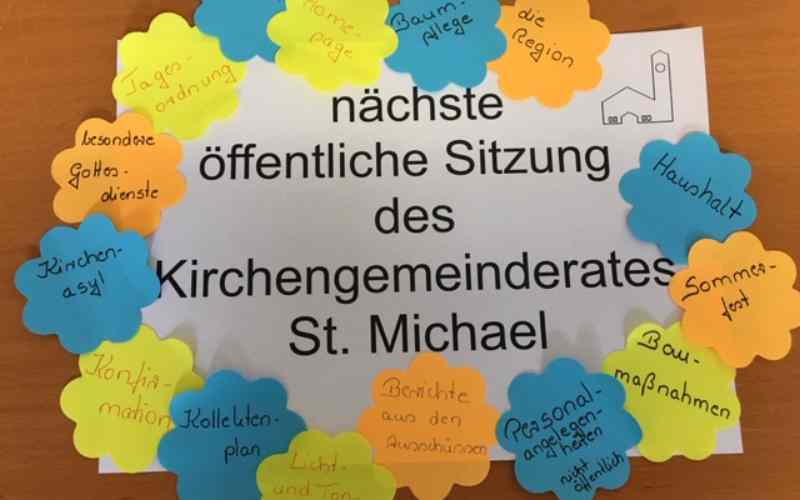 Home-
page
Baum-
pflege
die
Region
Tages-
ordnung
nächste
öffentliche Sitzung
des
Kirchengemeinderates
St. Michael
besondere
Gottes-
dienste
Haushalt
Kirchen-
asyl
Sommer-
fest
Konfir-
mation
Bau-
maßnahmen
Kollekten-
plan
Berichte
aus den
Ausschüssen
Personal-
angelegen-
heiten
nicht
öffentlich
Licht-
und Ton-